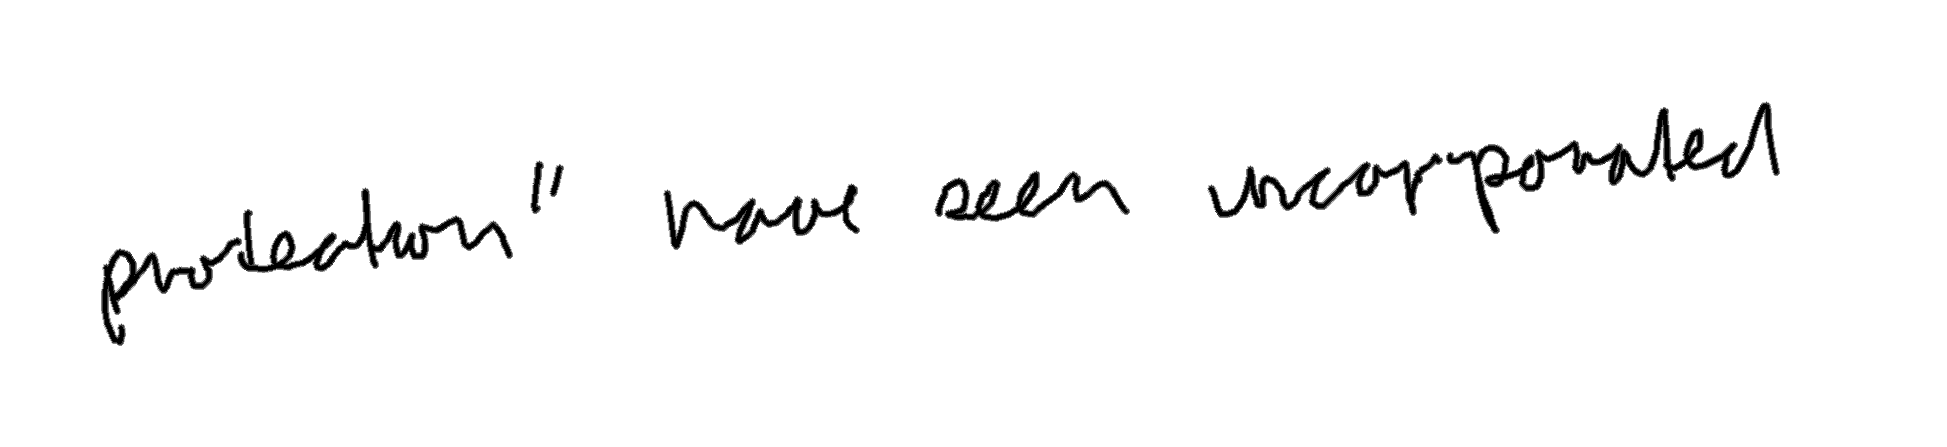 protection" have seen incorporated